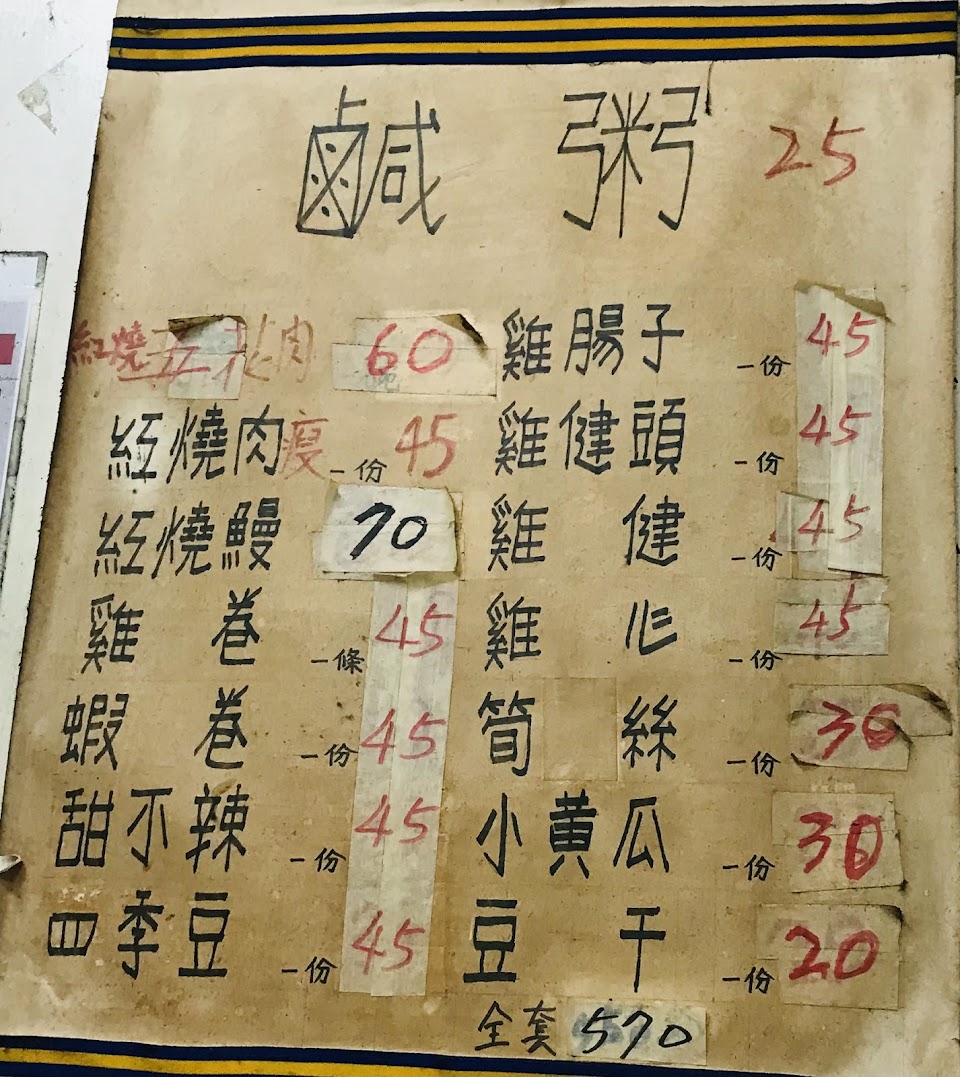 鹹粥 25
紅燒五花肉 60
紅燒肉瘦 一份 45
紅燒鰻 70
雞卷 一條 45
蝦卷 一份 45
甜不辣 一份 45
四季豆 一份 45
雞腸子 一份 45
雞健頭 一份 45
雞健 一份 45
雞心 一份 45
筍絲 一份 30
小黃瓜 一份 30
豆干 一份 20
全套 570